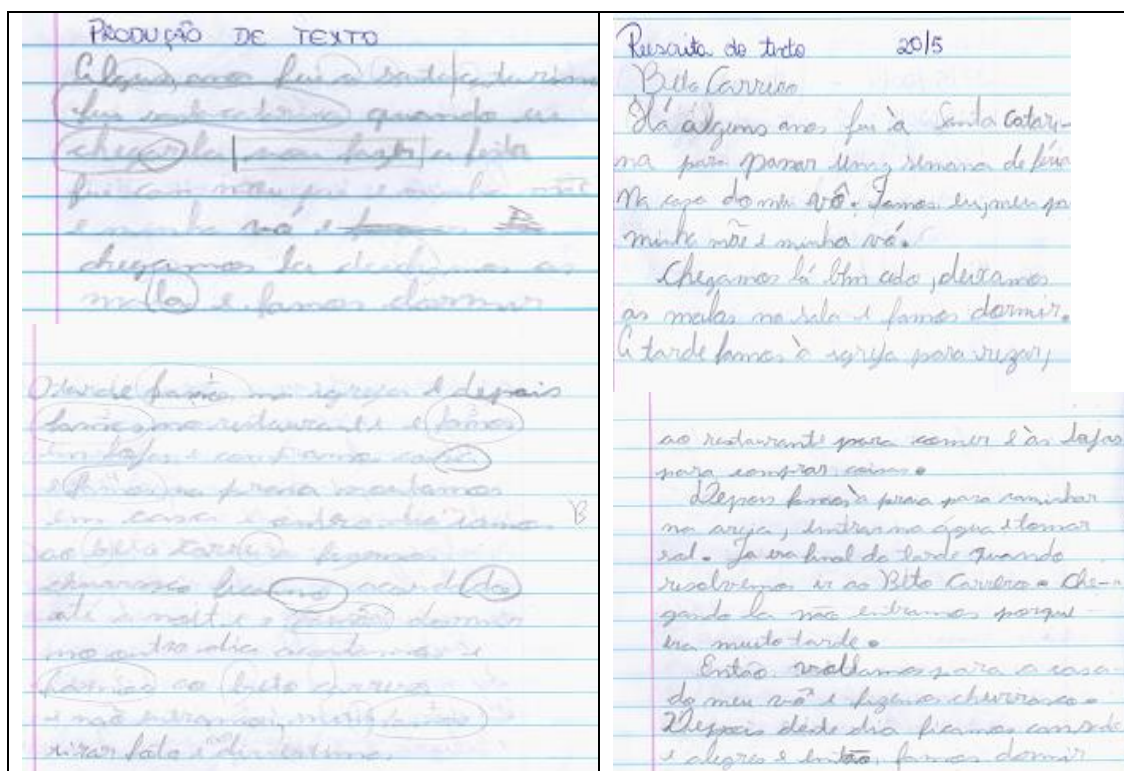 PRODUÇÃO DE TEXTO
Alguns anos fui a santa catarina
fui santa catarina quando eu
chegar la a festa
fui com meu pai e minha mãe
e minha vó e
chegamos la deichamos as
mala e famos dormir
tarde famos na igreja e depois
famos no restaurante e famos
em lojas e compramos
e famos na praia
em casa e outro dia
ao beto carreiro
churrasco
até a noite e dormir
no outro dia acordamos e
famos ao beto carreiro
e não entramos,
tirar foto e divertimos
Rescrita do texto 20/5
Beto Carrero
Há alguns anos fui à Santa Catari-
na para passar uma semana de féria
Na casa do meu vô. Famos eu, meu pa
minha mãe e minha vó.
Chegamos lá bem cedo, deixamos
as malas na sala e famos dormir.
A tarde famos à igreja para rezar,
ao restaurante para comer e às lojas
para comprar coisas.
Depois famos à praia para caminhar
na areja, entrar na água e tomar
sol. Ja era final da tarde quando
resolvemos ir ao Beto Carrero. Che-
gando la não entramos porque
era muito tarde.
Então voltamos para a casa
do meu vô e fizemos churrasco.
Depois deste dia ficamos
e alegres e então famos dormir